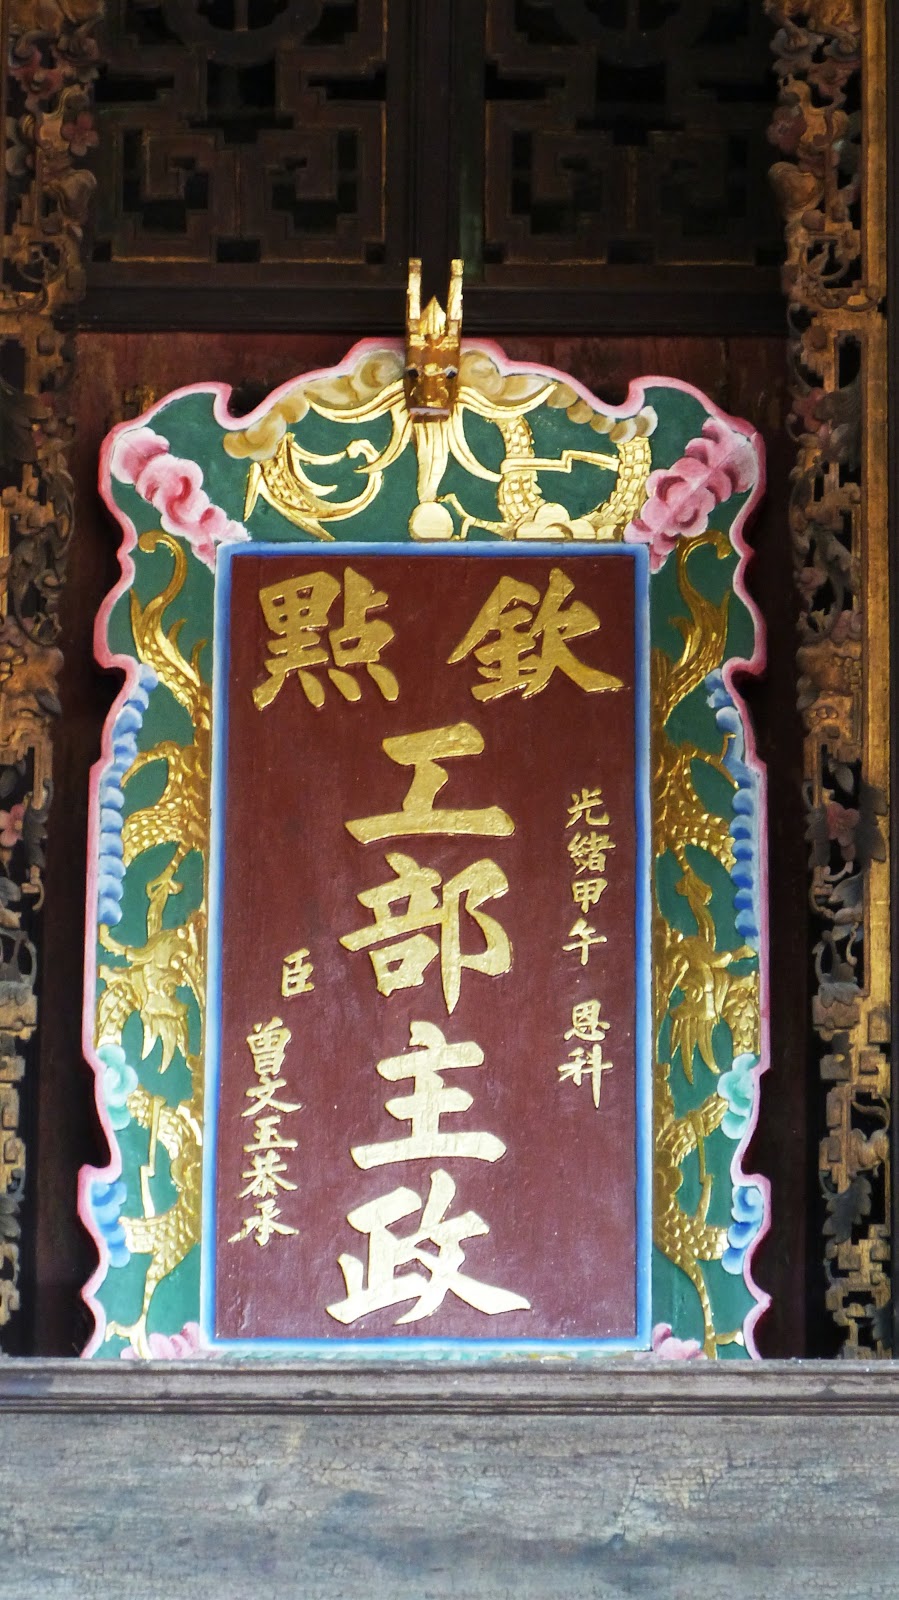 欽點
光緒甲午 恩科
工部主政
臣 曾文玉恭承